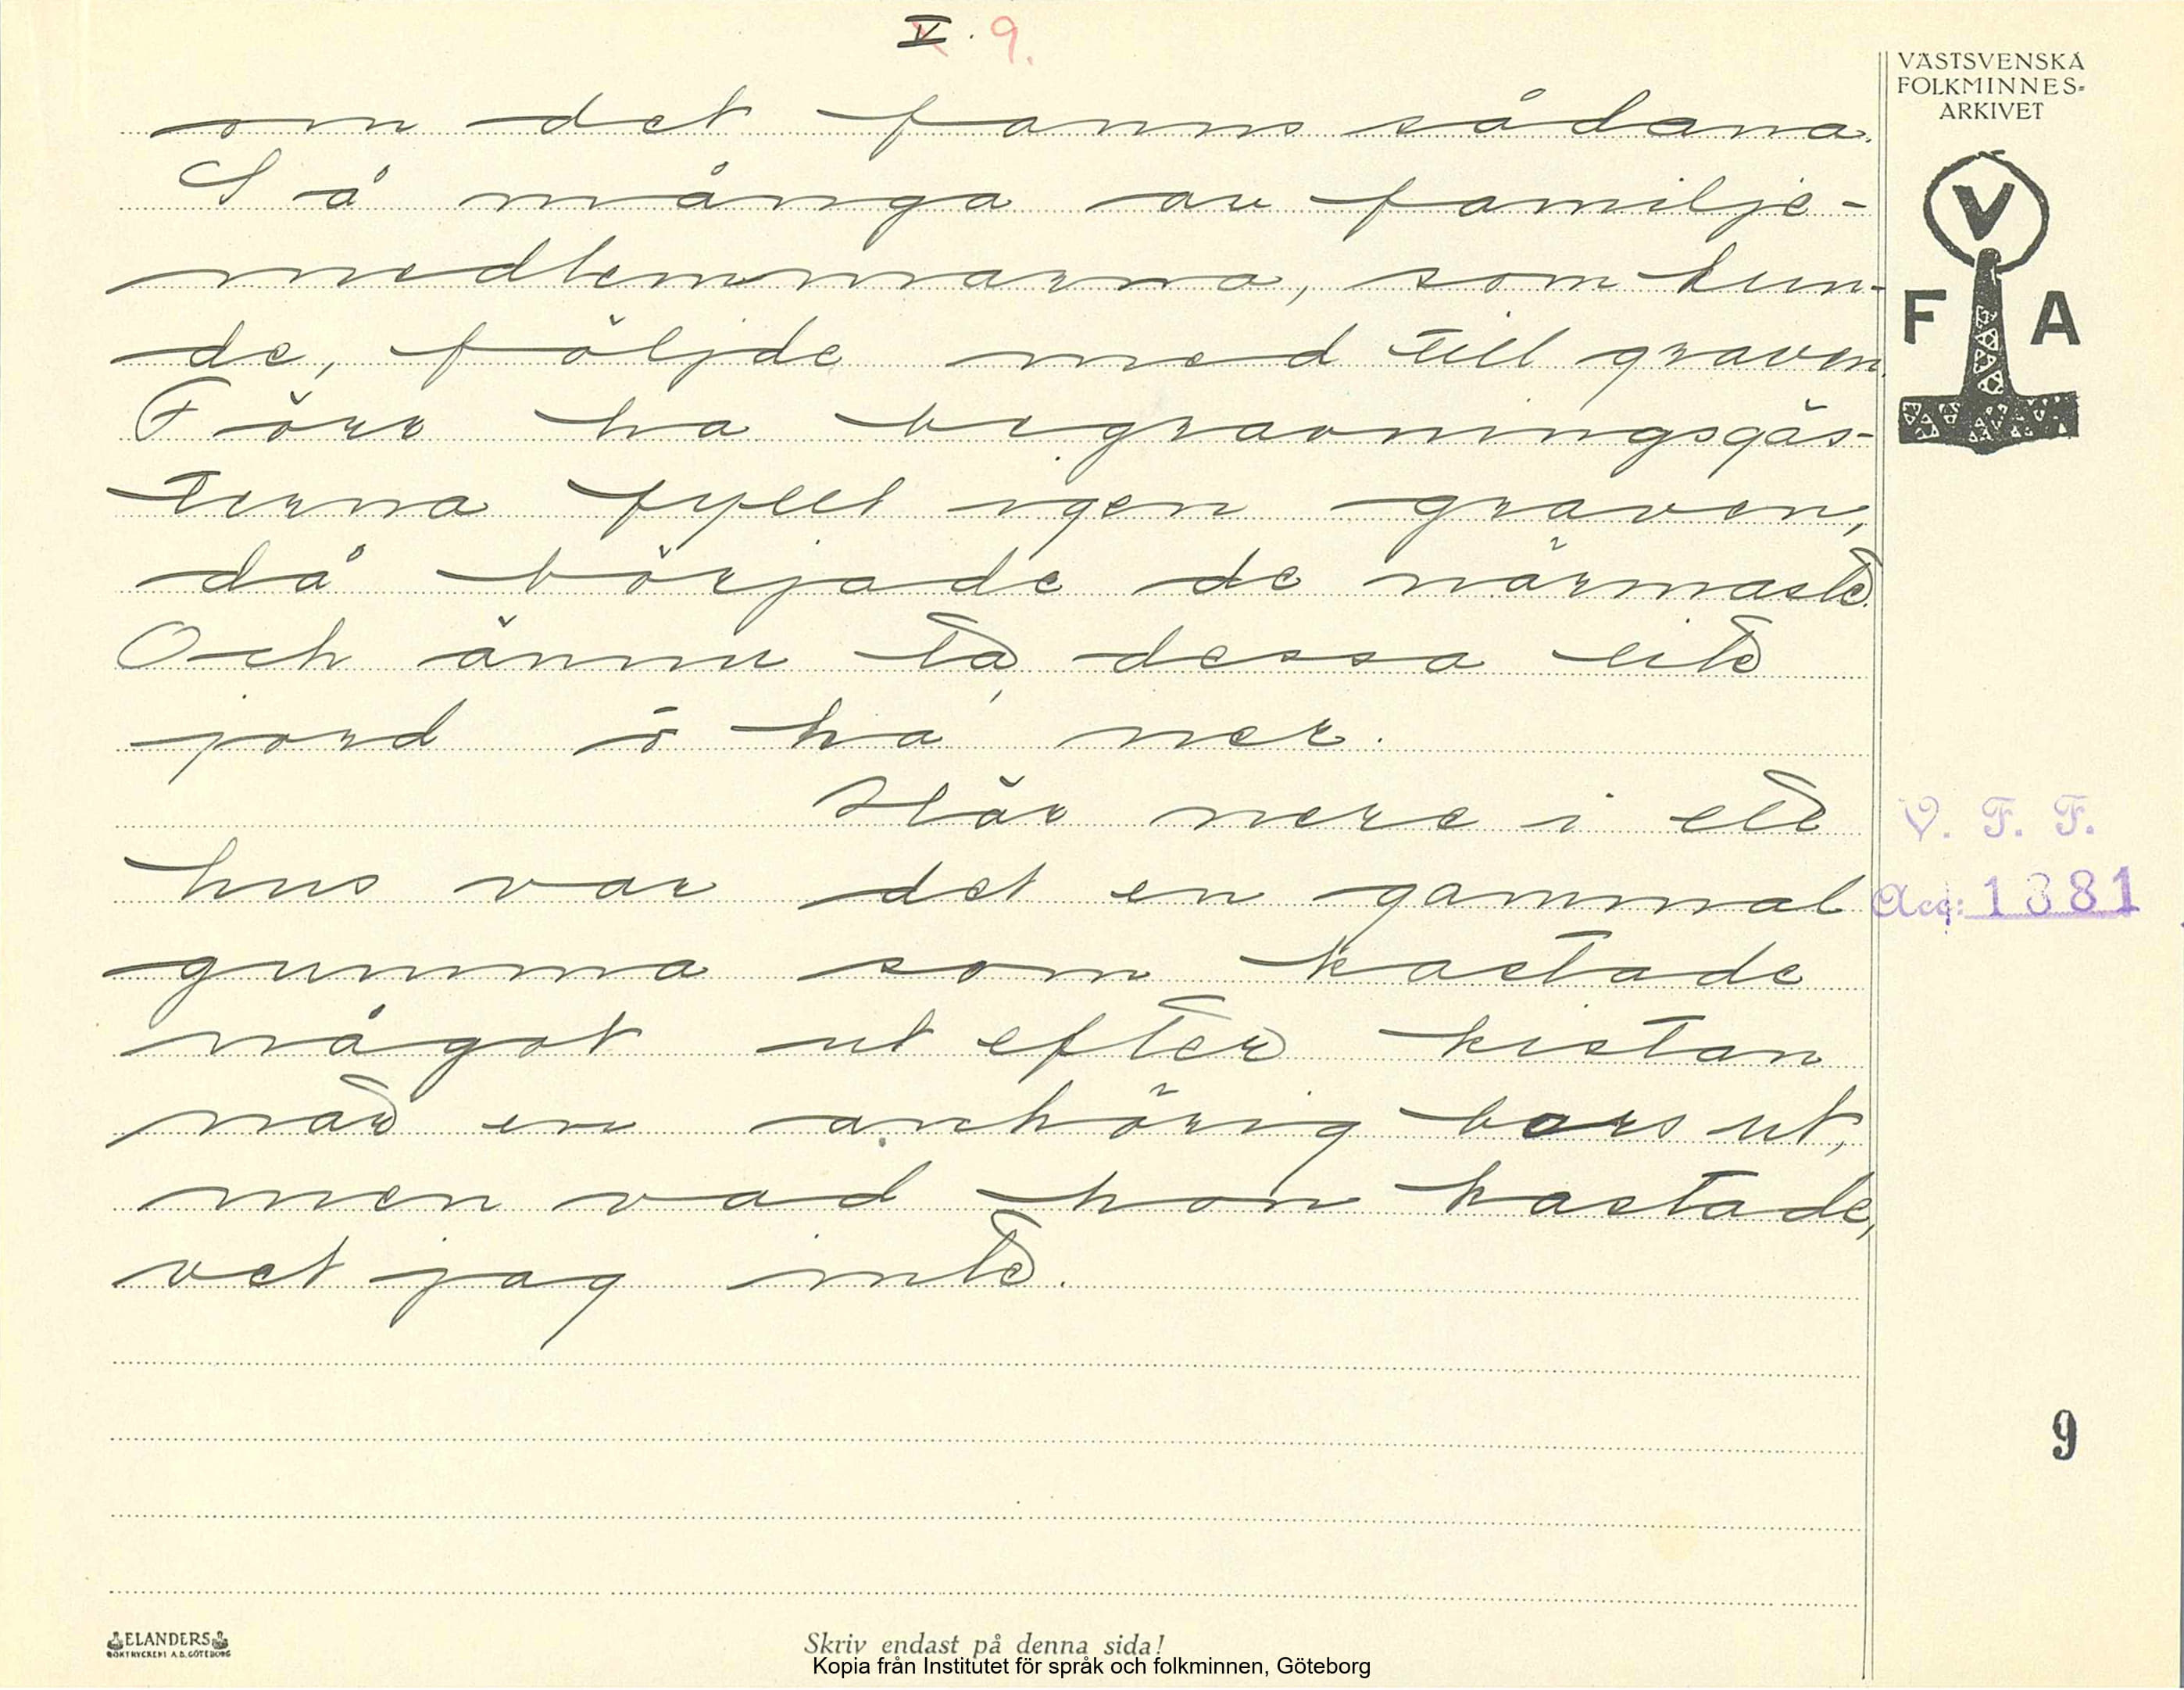 V. 9.
VÄSTSVENSKA
FOLKMINNES-
ARKIVET
V
F A
om det fanns sådana.
Så många av familje-
medlemmarna, som kun-
de, följde med till graven.
Förr ha begravningsgäs-
terna fyllt igen graven,
då började de närmaste.
Och ännu ta dessa lite
jord å ha ner.
Här nere i ett
hus var det en gammal
gumma som kastade
något ut efter kistan
när en anhörig bars ut,
men vad hon kastade,
vet jag inte.
V. F. F.
Acc: 1381
9
ELANDERS
BOKTRYCKERI A.B. GÖTEBORG
Skriv endast på denna sida!
Kopia från Institutet för språk och folkminnen, Göteborg